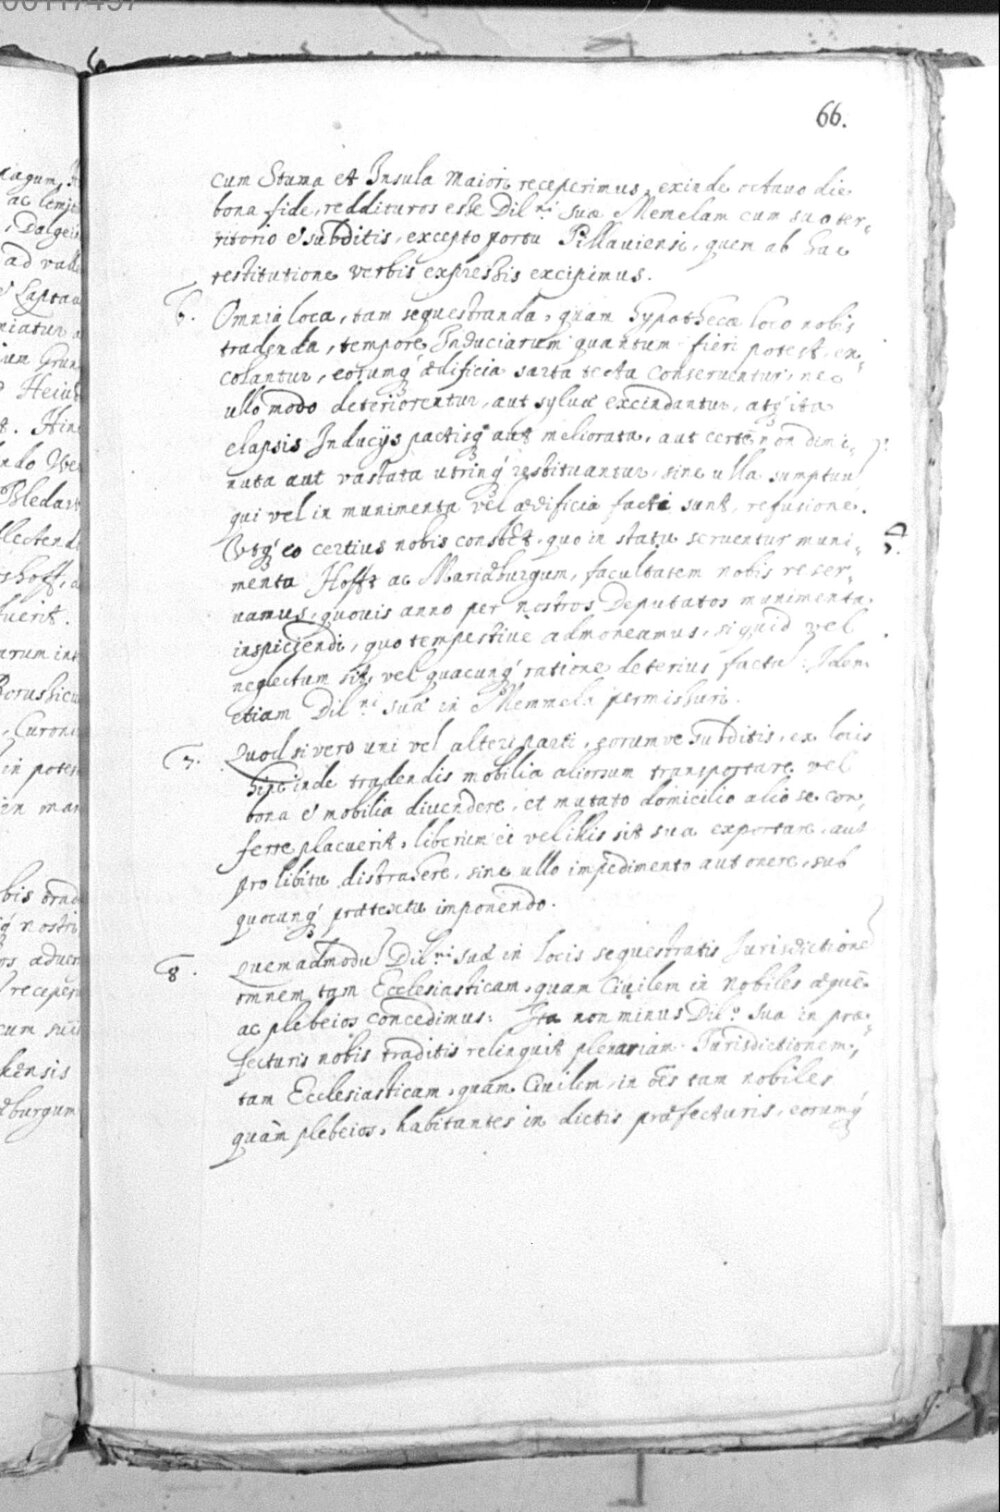 66.
cum Stuma et Insula maiori receperimus, exinde octauo die
bona fide, reddituros esse Dil.ni suæ Memelam cum suo ter,
ritorio et subditis, excepto portu Pillauiensi, quem ab hac
restitutione verbis expressis excipimus.
6. Omnia loca, tam sequestranda, quàm hypothecæ loco nobis
tradenda, tempore Induciarum quantum fieri potest, ex,
colantur, eorumq́ ædificia sarta tecta conseruentur, nec
ullo modo deteriorentur, aut syluæ excindantur, atq́ ita
elapsis Inducijs pactisq́ aut meliorata, aut certè non dimi,
nuta aut vastata utrinq́ restituantur, sine ulla sumptuu
qui vel in munimenta vel ædificia facti sunt, refusione.
Utq́ eo certius nobis constet, quo in statu seruentur muni,
menta Hofft ac Mariæburgum, facultatem nobis reser,
uamus, quouis anno per nostros Deputatos munimenta
inspiciendi, quo tempestiuè admoneamus, siquid vel
neglectum sit, vel quacunq́ ratione deterius factu: Idem
etiam Dil.ni suæ in Memmela permissuri.
7. Quod si vero uni vel alteri parti, eorumve subditis, ex locis
hinc inde tradendis mobilia aliorsum transportare vel
bona et mobilia diuendere, et mutato domicilio alio se con,
ferre placuerit, liberum ei vel illis sit sua exportare, aut
pro libitu distrahere, sine ullo impedimento aut onere, sub
quocunq́ prætextu imponendo.
8. Quemadmodu Dil.ni suæ in locis sequestratis Jurisdictione
omnem tam Ecclesiasticam, quam Ciuilem in nobiles æquè
ac plebeios concedimus: Ita non minus Dil.o sua in præ,
fecturis nobis traditis relinquit plenariam Jurisdictionem,
tam Ecclesiasticam, quam Ciuilem, in oēs tam nobiles
quàm plebeios, habitantes in dictis præfecturis, eorumq́